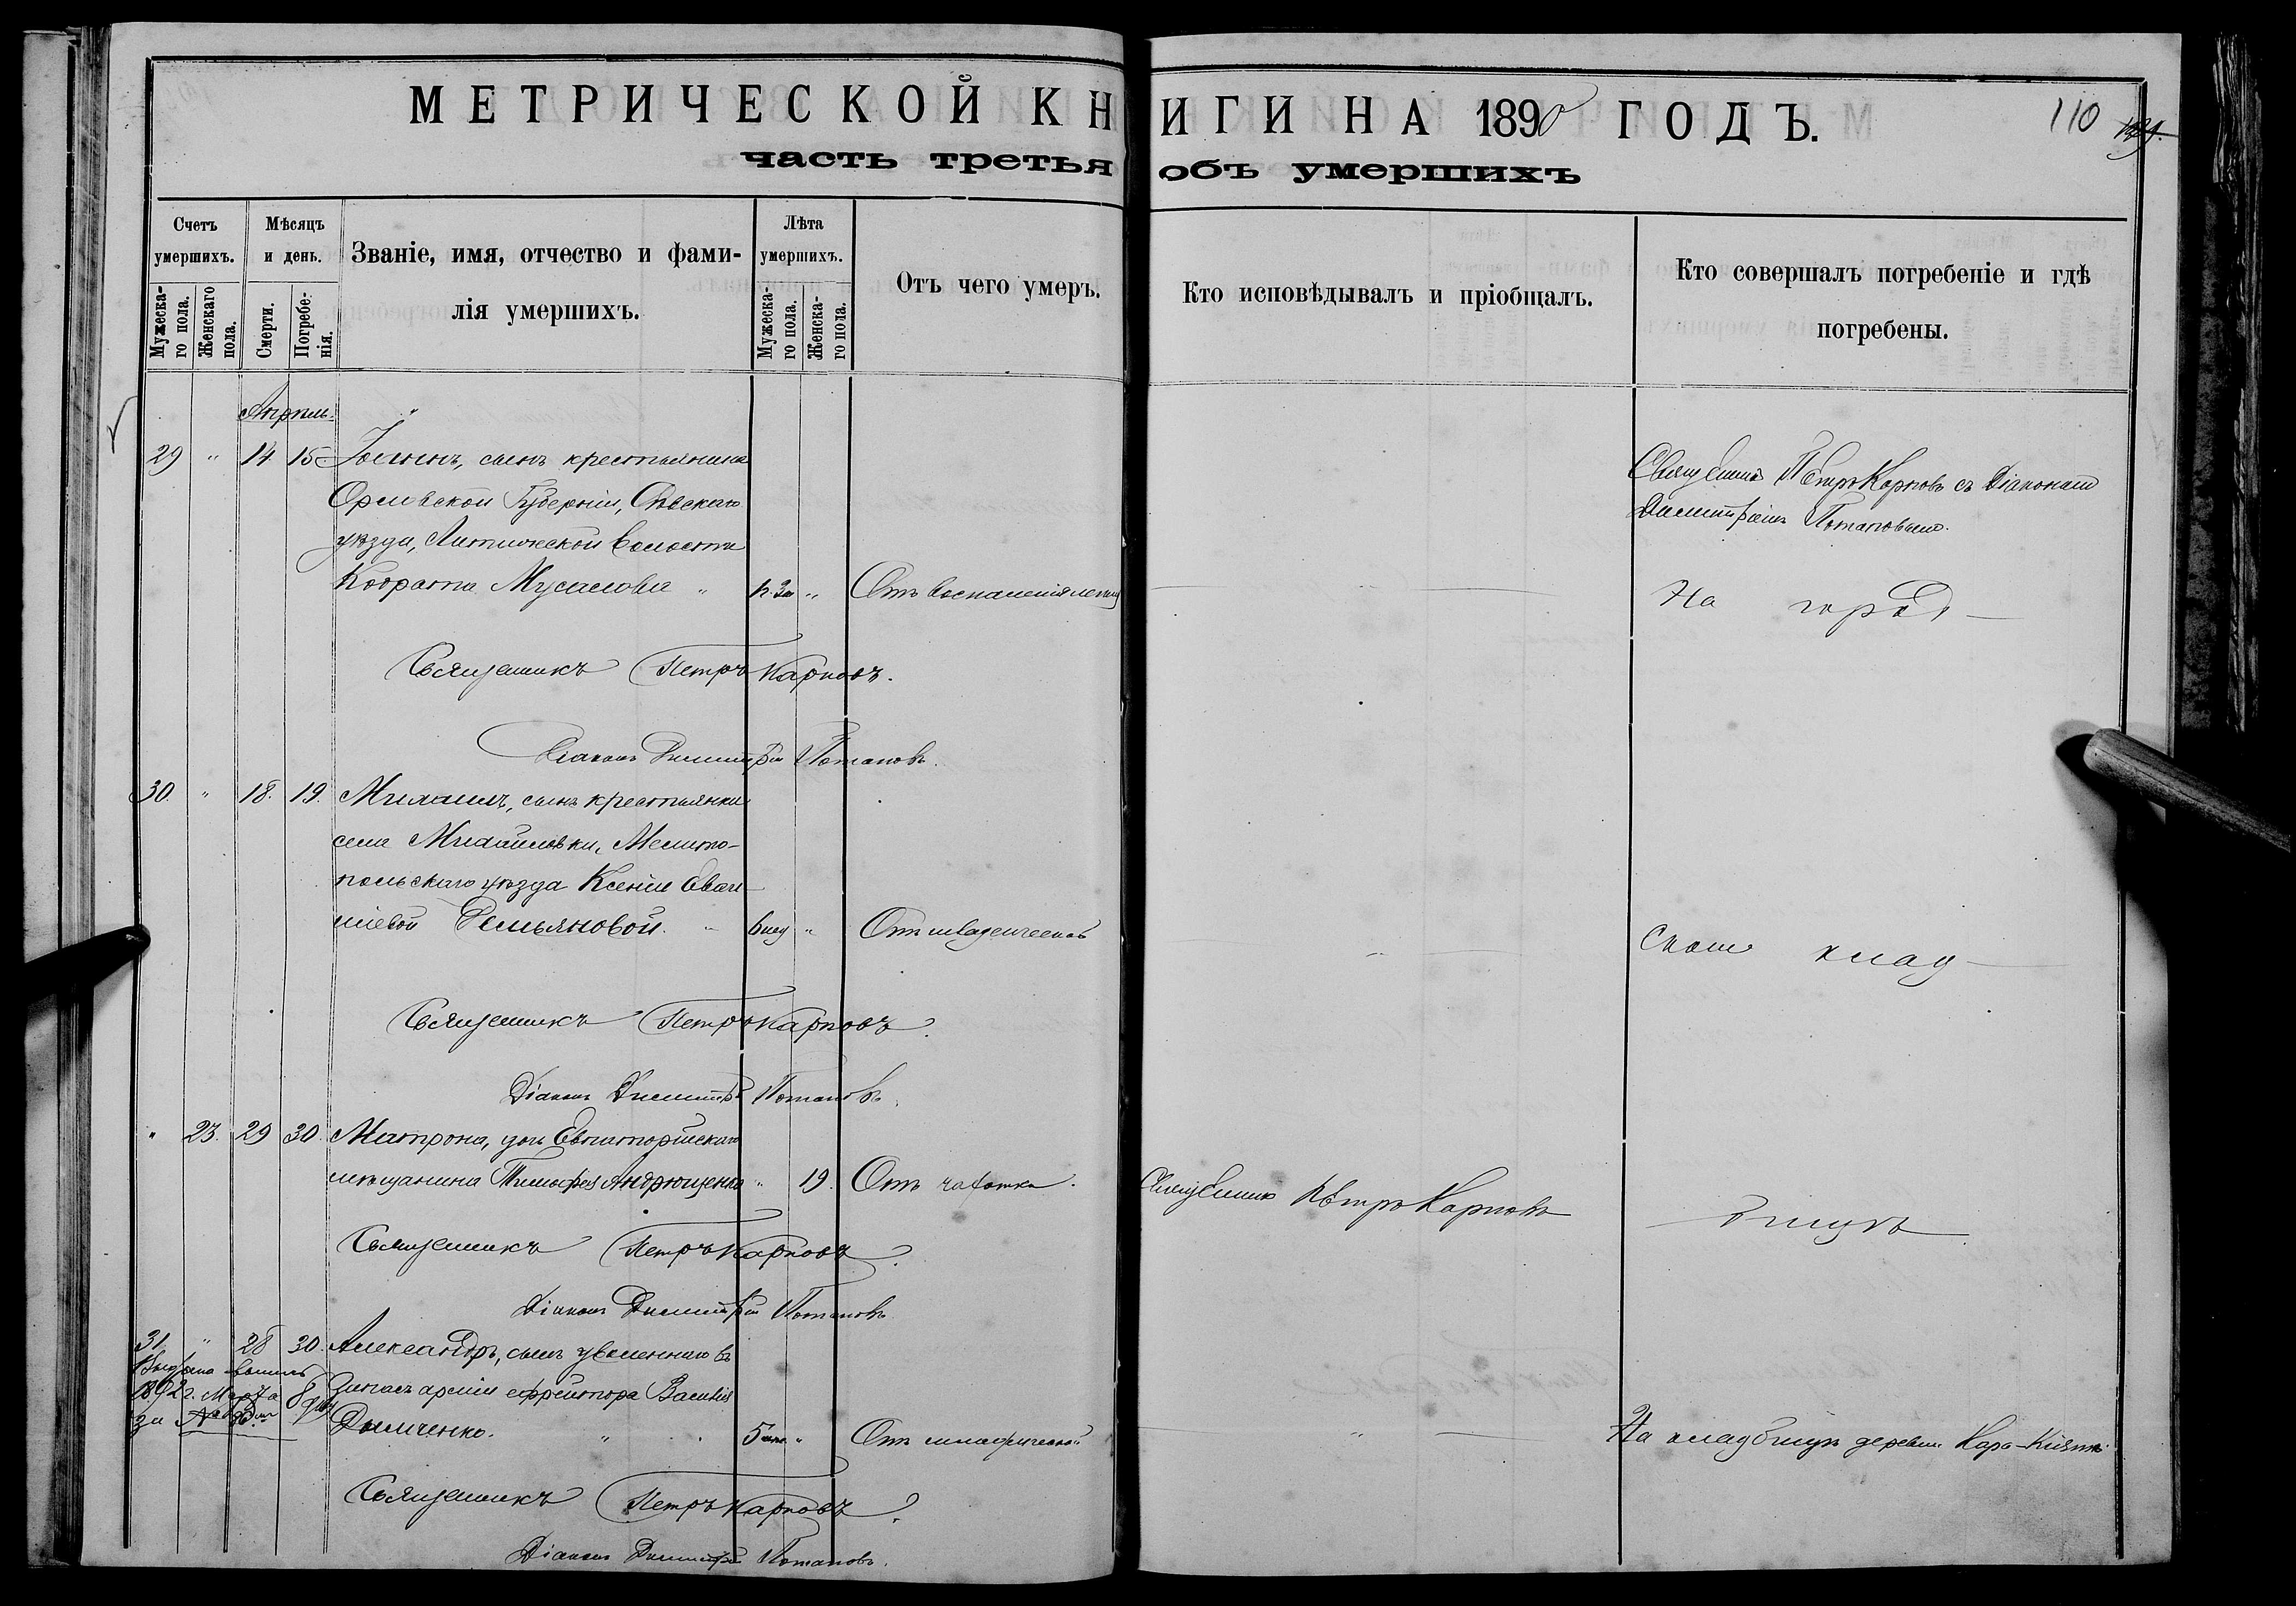 МЕТРИЧЕСКОЙ КНИГИ НА 1890 ГОДЪ.
110
часть третья объ умершихъ
Счетъ умершихъ.
Мужескаго пола.
Женскаго пола.
Мѣсяцъ и день.
Смерти.
Погребенія.
Званіе, имя, отчество и фамилія умершихъ.
Лѣта умершихъ.
Мужескаго пола.
Женскаго пола.
Отъ чего умеръ.
Кто исповѣдывалъ и пріобщалъ.
Кто совершалъ погребеніе и гдѣ погребены.
Апрѣль.
29 " 14 15 сынъ крестьянина
Орловской Губерніи, Сѣвскаго
уѣзда, волости
Кодрата Мусалова " " Отъ воспаленія легкихъ
Священникъ Петръ Карповъ съ Діакономъ
Димитріемъ Потаповымъ.
На город
Священникъ Петръ Карповъ.
Діаконъ Димитрій Потаповъ.
30. " 18. 19. Михаилъ, сынъ крестьянки
села Михайловки, Мелито-
польскаго уѣзда Ксеніи
Демьяновой. " 6 нед " Отъ младенческой
ском клад
Священникъ Петръ Карповъ.
Діаконъ Димитрій Потаповъ.
" 23. 29 30. Матрона, дочь Евпаторійскаго
мѣщанина Тимофея Андрющенко " 19. Отъ чахотки.
Священникъ Петръ Карповъ
бищѣ
Священникъ Петръ Карповъ.
Діаконъ Димитрій Потаповъ
31. " 28 30. Александръ, сынъ уволеннаго въ
запасъ арміи ефрейтора Василія
Дымченко. " 5 " Отъ
1892 г. Марта 8 дня
за №
На кладбищѣ деревни Кара-Кіятъ
Священникъ Петръ Карповъ.
Діаконъ Димитрій Потаповъ.